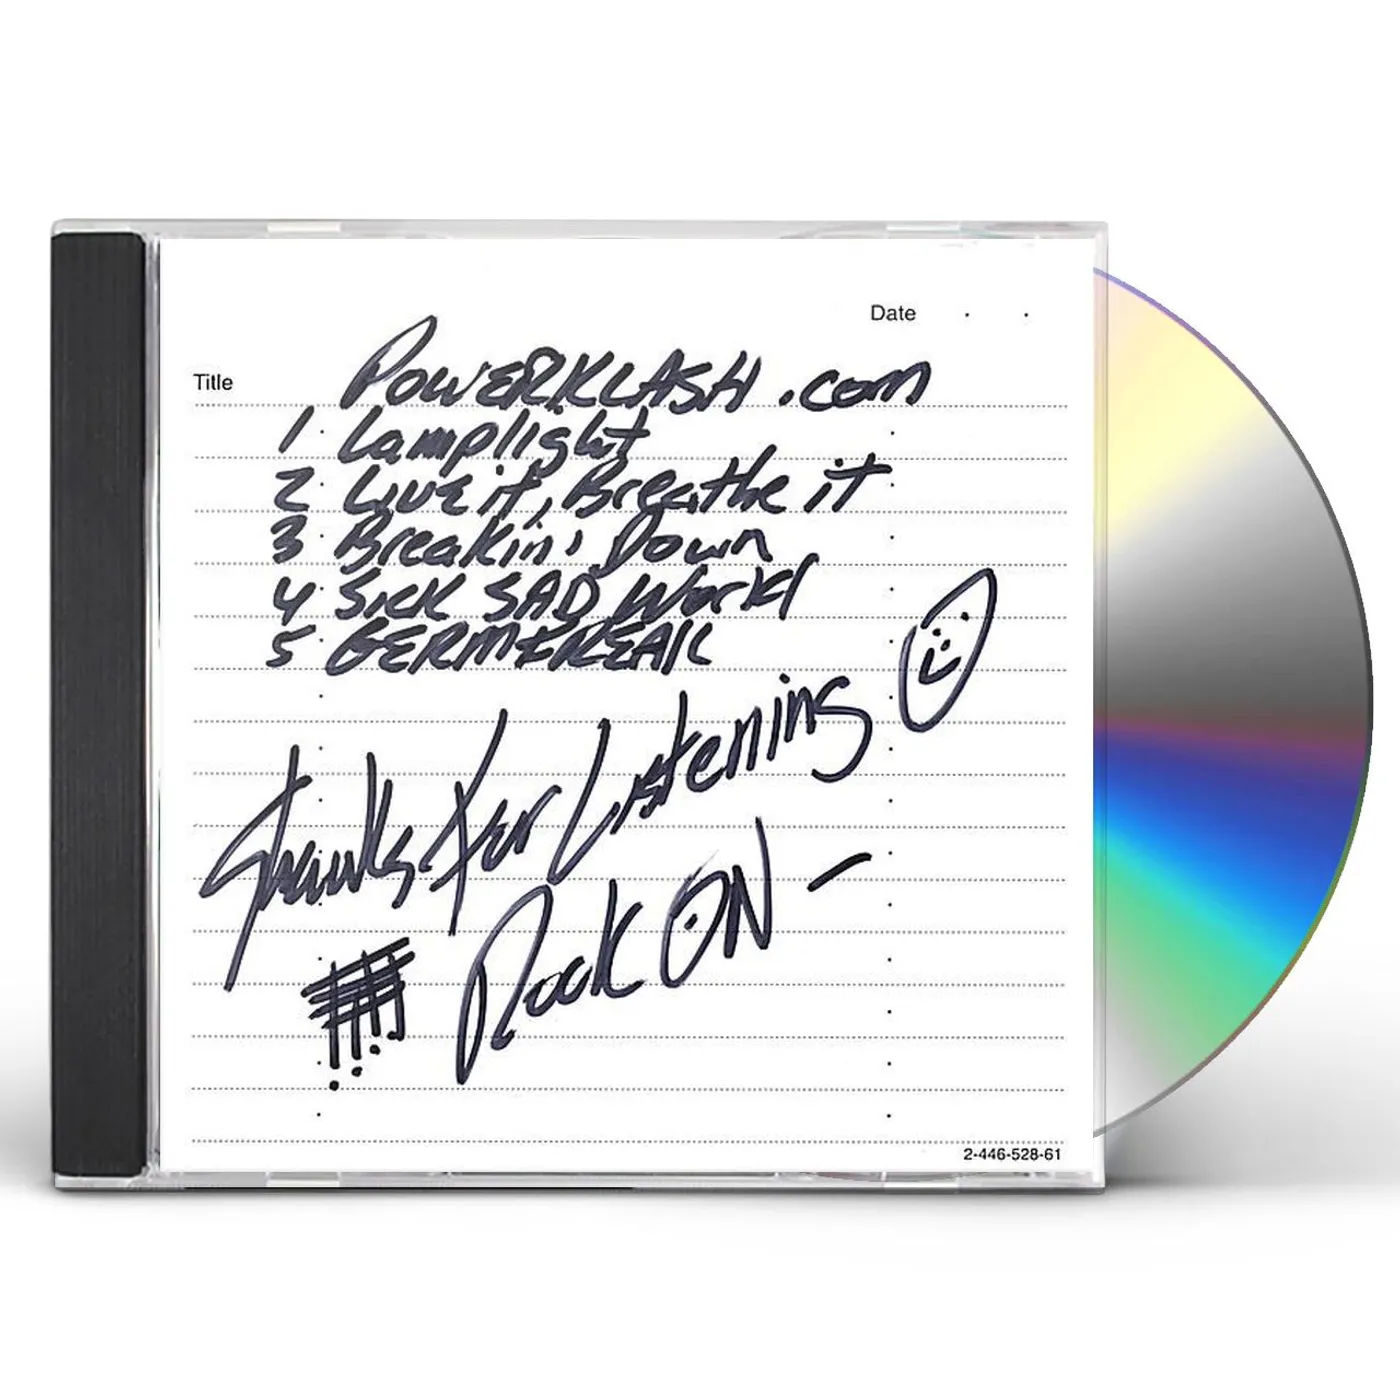 Date . .
Title POWERKLASH.com
1 Lamplight
2 Live it, Breathe it
3 Breakin' Down
4 SICK SAD World
5 GERMFREAK
Thanks For Listening
Rock ON -
2-446-528-61